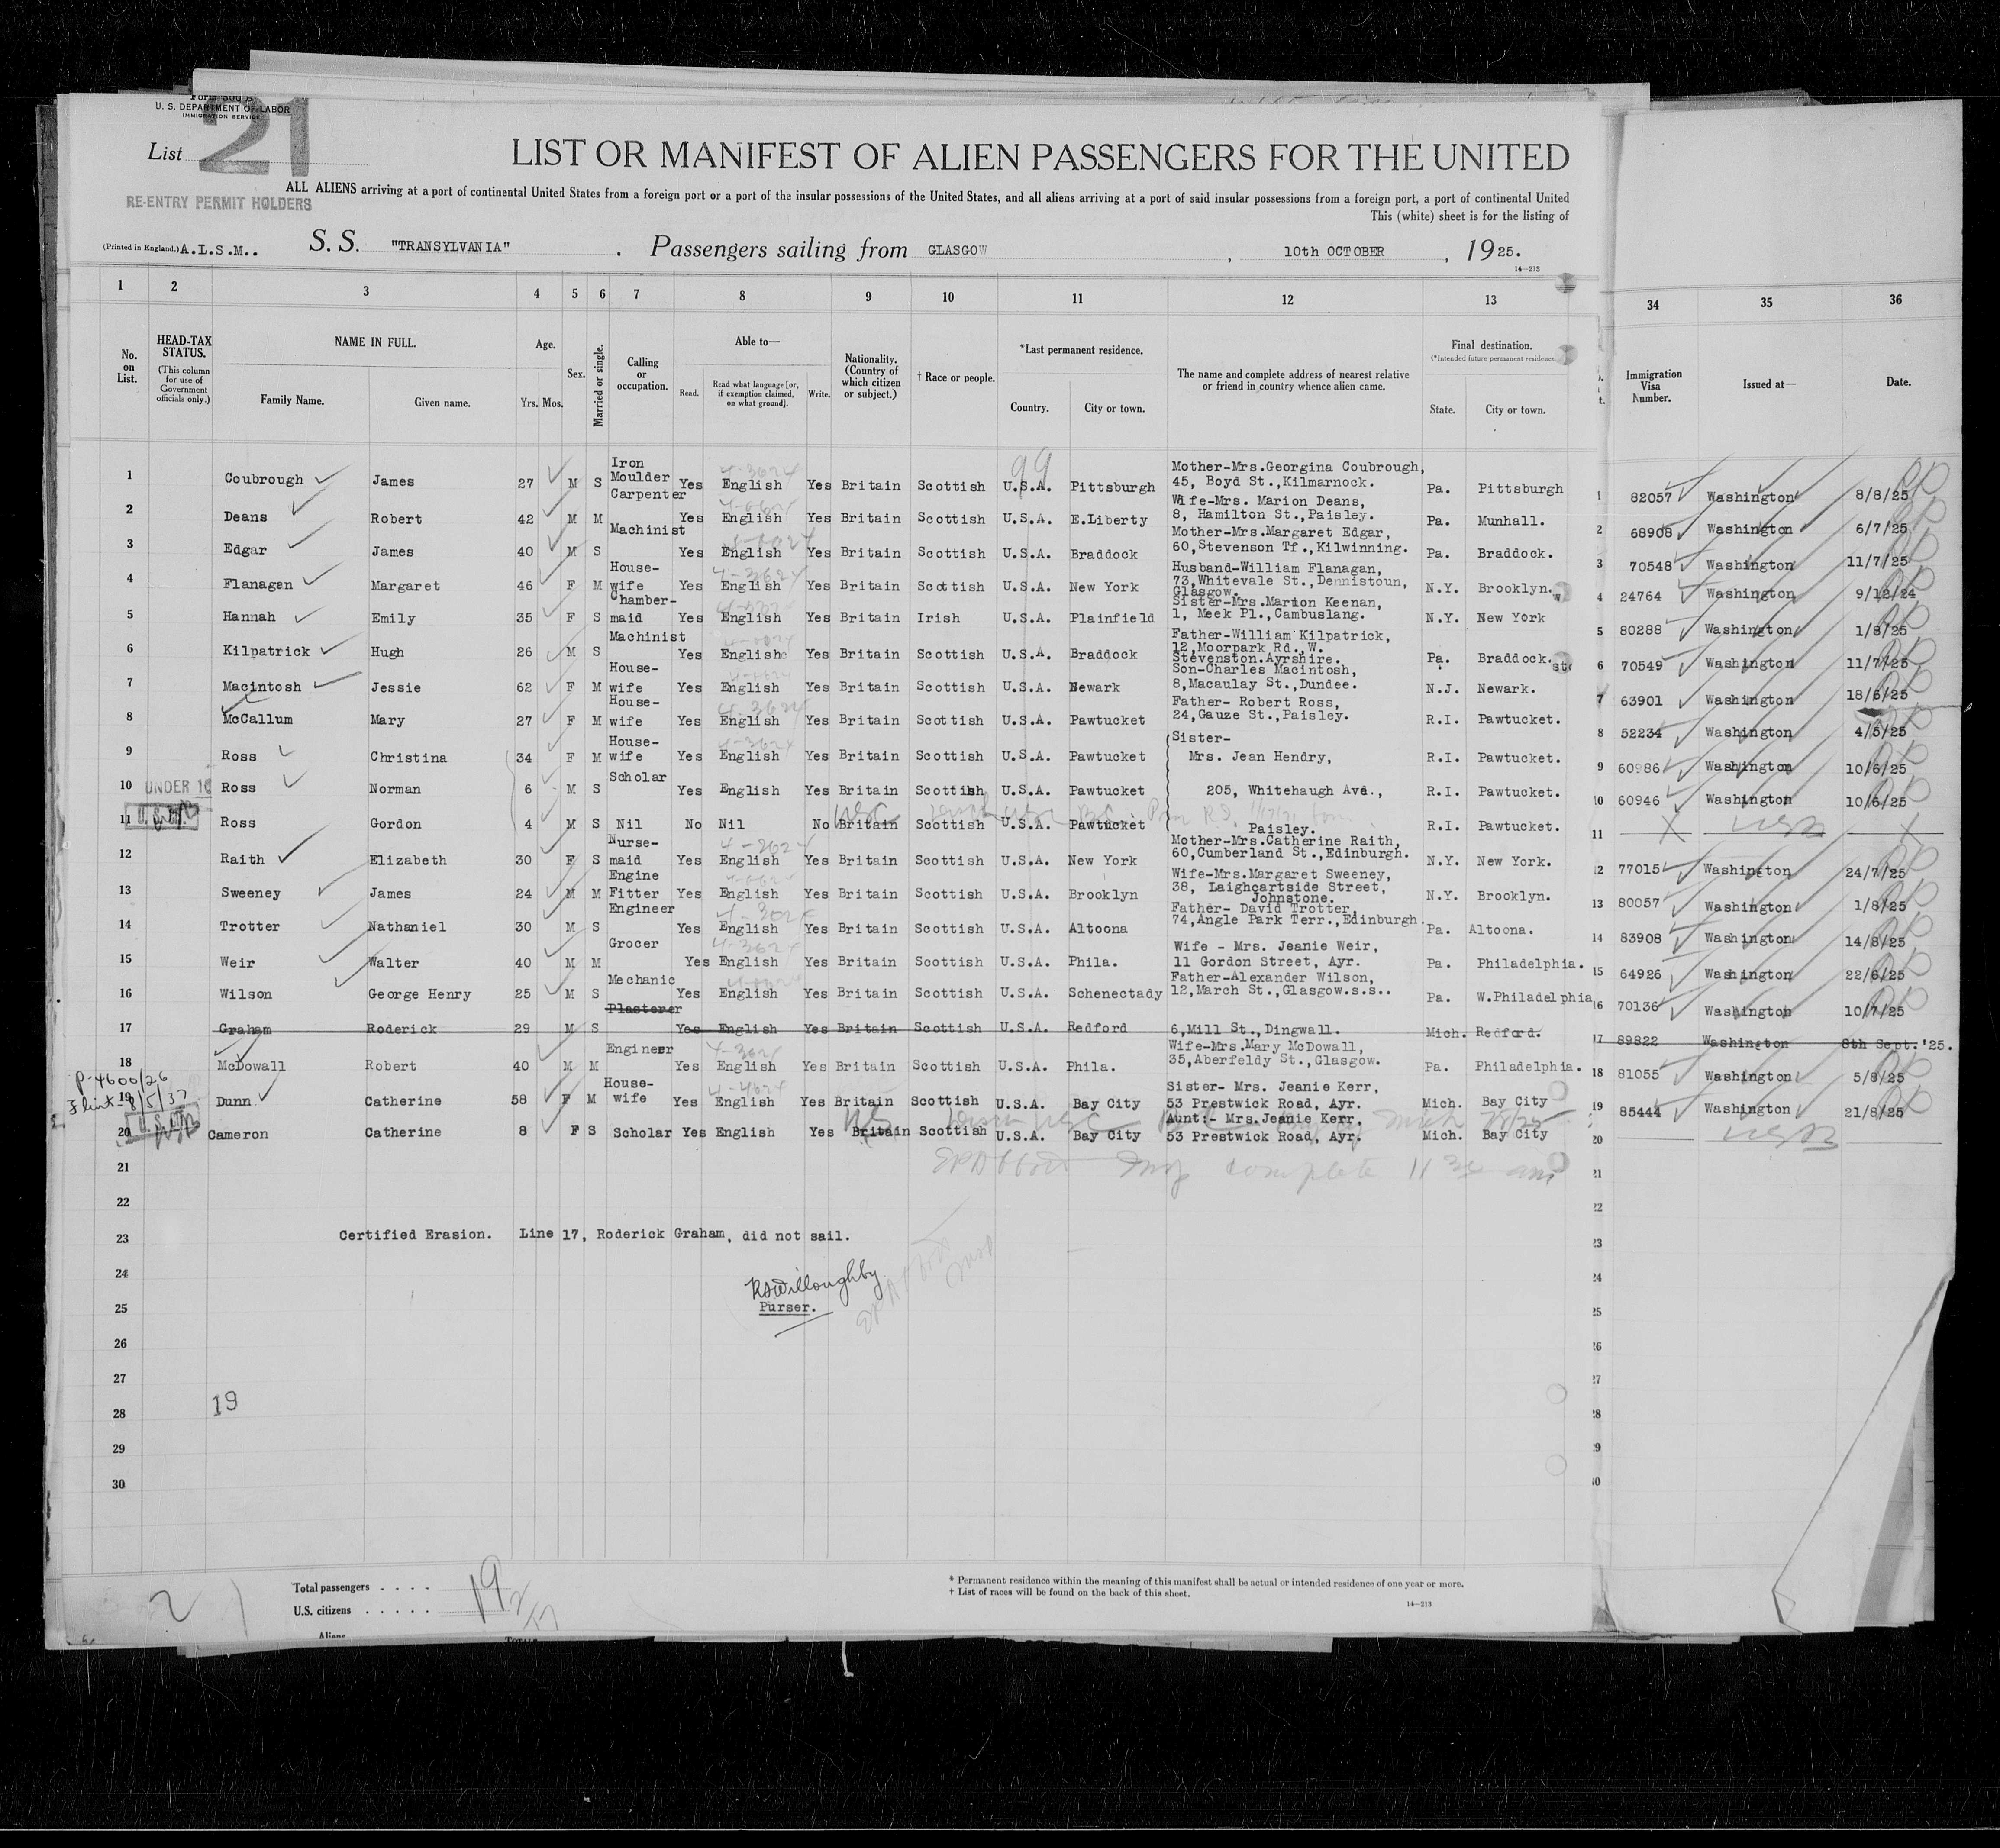 Form 500 A
U. S. DEPARTMENT OF LABOR
IMMIGRATION SERVICE
21
List
LIST OR MANIFEST OF ALIEN PASSENGERS FOR THE UNITED
ALL ALIENS arriving at a port of continental United States from a foreign port or a port of the insular possessions of the United States, and all aliens arriving at a port of said insular possessions from a foreign port, a port of continental United
RE-ENTRY PERMIT HOLDERS
This (white) sheet is for the listing of
(Printed in England.) A.L.S.M.. S. S. "TRANSYLVANIA" . Passengers sailing from GLASGOW , 10th OCTOBER , 1925.
14—213
1 2 3 4 5 6 7 8 9 10 11 12 13 34 35 36
No. on List. HEAD-TAX STATUS. (This column for use of Government officials only.) NAME IN FULL. Family Name. Given name. Age. Yrs. Mos. Sex. Married or single. Calling or occupation. Able to— Read. Read what language [or, if exemption claimed, on what ground]. Write. Nationality. (Country of which citizen or subject.) † Race or people. *Last permanent residence. Country. City or town. The name and complete address of nearest relative or friend in country whence alien came. Final destination. (*Intended future permanent residence. State. City or town. Immigration Visa Number. Issued at— Date.
99
1 Coubrough James 27 M S Iron Moulder Yes English Yes Britain Scottish U.S.A. Pittsburgh Mother-Mrs.Georgina Coubrough, 45, Boyd St.,Kilmarnock. Pa. Pittsburgh 1 82057 Washington 8/8/25
2 Deans Robert 42 M M Carpenter Yes English Yes Britain Scottish U.S.A. E.Liberty Wife-Mrs. Marion Deans, 8, Hamilton St.,Paisley. Pa. Munhall. 2 68908 Washington 6/7/25
3 Edgar James 40 M S Machinist Yes English Yes Britain Scottish U.S.A. Braddock Mother-Mrs.Margaret Edgar, 60,Stevenson Tf.,Kilwinning. Pa. Braddock. 3 70548 Washington 11/7/25
4 Flanagan Margaret 46 F M House-wife Yes English Yes Britain Scottish U.S.A. New York Husband-William Flanagan, 73,Whitevale St.,Dennistoun, Glasgow. N.Y. Brooklyn. 4 24764 Washington 9/12/24
5 Hannah Emily 35 F S Chamber-maid Yes English Yes Britain Irish U.S.A. Plainfield Sister-Mrs.Marion Keenan, 1, Meek Pl.,Cambuslang. N.Y. New York 5 80288 Washington 1/8/25
6 Kilpatrick Hugh 26 M S Machinist Yes English Yes Britain Scottish U.S.A. Braddock Father-William Kilpatrick, 12,Moorpark Rd.,W. Stevenston.Ayrshire. Pa. Braddock. 6 70549 Washington 11/7/25
7 Macintosh Jessie 62 F M House-wife Yes English Yes Britain Scottish U.S.A. Newark Son-Charles Macintosh, 8,Macaulay St.,Dundee. N.J. Newark. 7 63901 Washington 18/6/25
8 McCallum Mary 27 F M House-wife Yes English Yes Britain Scottish U.S.A. Pawtucket Father- Robert Ross, 24,Gauze St.,Paisley. R.I. Pawtucket. 8 52234 Washington 4/5/25
9 Ross Christina 34 F M House-wife Yes English Yes Britain Scottish U.S.A. Pawtucket Sister- Mrs. Jean Hendry, R.I. Pawtucket. 9 60986 Washington 10/6/25
10 UNDER 16 Ross Norman 6 M S Scholar Yes English Yes Britain Scottish U.S.A. Pawtucket 205, Whitehaugh Ave., R.I. Pawtucket. 10 60946 Washington 10/6/25
11 Ross Gordon 4 M S Nil No Nil No Britain Scottish U.S.A. Pawtucket Paisley. R.I. Pawtucket. 11
12 Raith Elizabeth 30 F S Nurse-maid Yes English Yes Britain Scottish U.S.A. New York Mother-Mrs.Catherine Raith, 60,Cumberland St.,Edinburgh. N.Y. New York. 12 77015 Washington 24/7/25
13 Sweeney James 24 M M Engine Fitter Yes English Yes Britain Scottish U.S.A. Brooklyn Wife-Mrs.Margaret Sweeney, 38, Laighcartside Street, Johnstone. N.Y. Brooklyn. 13 80057 Washington 1/8/25
14 Trotter Nathaniel 30 M S Engineer Yes English Yes Britain Scottish U.S.A. Altoona Father- David Trotter, 74,Angle Park Terr.,Edinburgh. Pa. Altoona. 14 83908 Washington 14/8/25
15 Weir Walter 40 M M Grocer Yes English Yes Britain Scottish U.S.A. Phila. Wife - Mrs. Jeanie Weir, 11 Gordon Street, Ayr. Pa. Philadelphia. 15 64926 Washington 22/6/25
16 Wilson George Henry 25 M S Mechanic Yes English Yes Britain Scottish U.S.A. Schenectady Father-Alexander Wilson, 12,March St.,Glasgow.s.s.. Pa. W.Philadelphia 16 70136 Washington 10/7/25
17 Graham Roderick 29 M S Plasterer Yes English Yes Britain Scottish U.S.A. Redford 6,Mill St.,Dingwall. Mich. Redford. 17 89822 Washington 8th Sept.'25.
18 McDowall Robert 40 M M Engineer Yes English Yes Britain Scottish U.S.A. Phila. Wife-Mrs.Mary McDowall, 35,Aberfeldy St.,Glasgow. Pa. Philadelphia. 18 81055 Washington 5/8/25
P-4600/26
Flint-8/5/37
19 Dunn Catherine 58 F M House-wife Yes English Yes Britain Scottish U.S.A. Bay City Sister- Mrs. Jeanie Kerr, 53 Prestwick Road, Ayr. Mich. Bay City 19 85444 Washington 21/8/25
20 Cameron Catherine 8 F S Scholar Yes English Yes Britain Scottish U.S.A. Bay City Aunt:- Mrs.Jeanie Kerr. 53 Prestwick Road, Ayr. Mich. Bay City 20
21 complete 21
22 22
23 Certified Erasion. Line 17, Roderick Graham, did not sail. 23
24 RSWilloughby 24
25 Purser. 25
26 26
27 27
28 19 28
29 29
30 30
Total passengers . . . . 19
U.S. citizens . . . . . 2/17
Aliens
TOTALS
2
* Permanent residence within the meaning of this manifest shall be actual or intended residence of one year or more.
† List of races will be found on the back of this sheet.
14—213